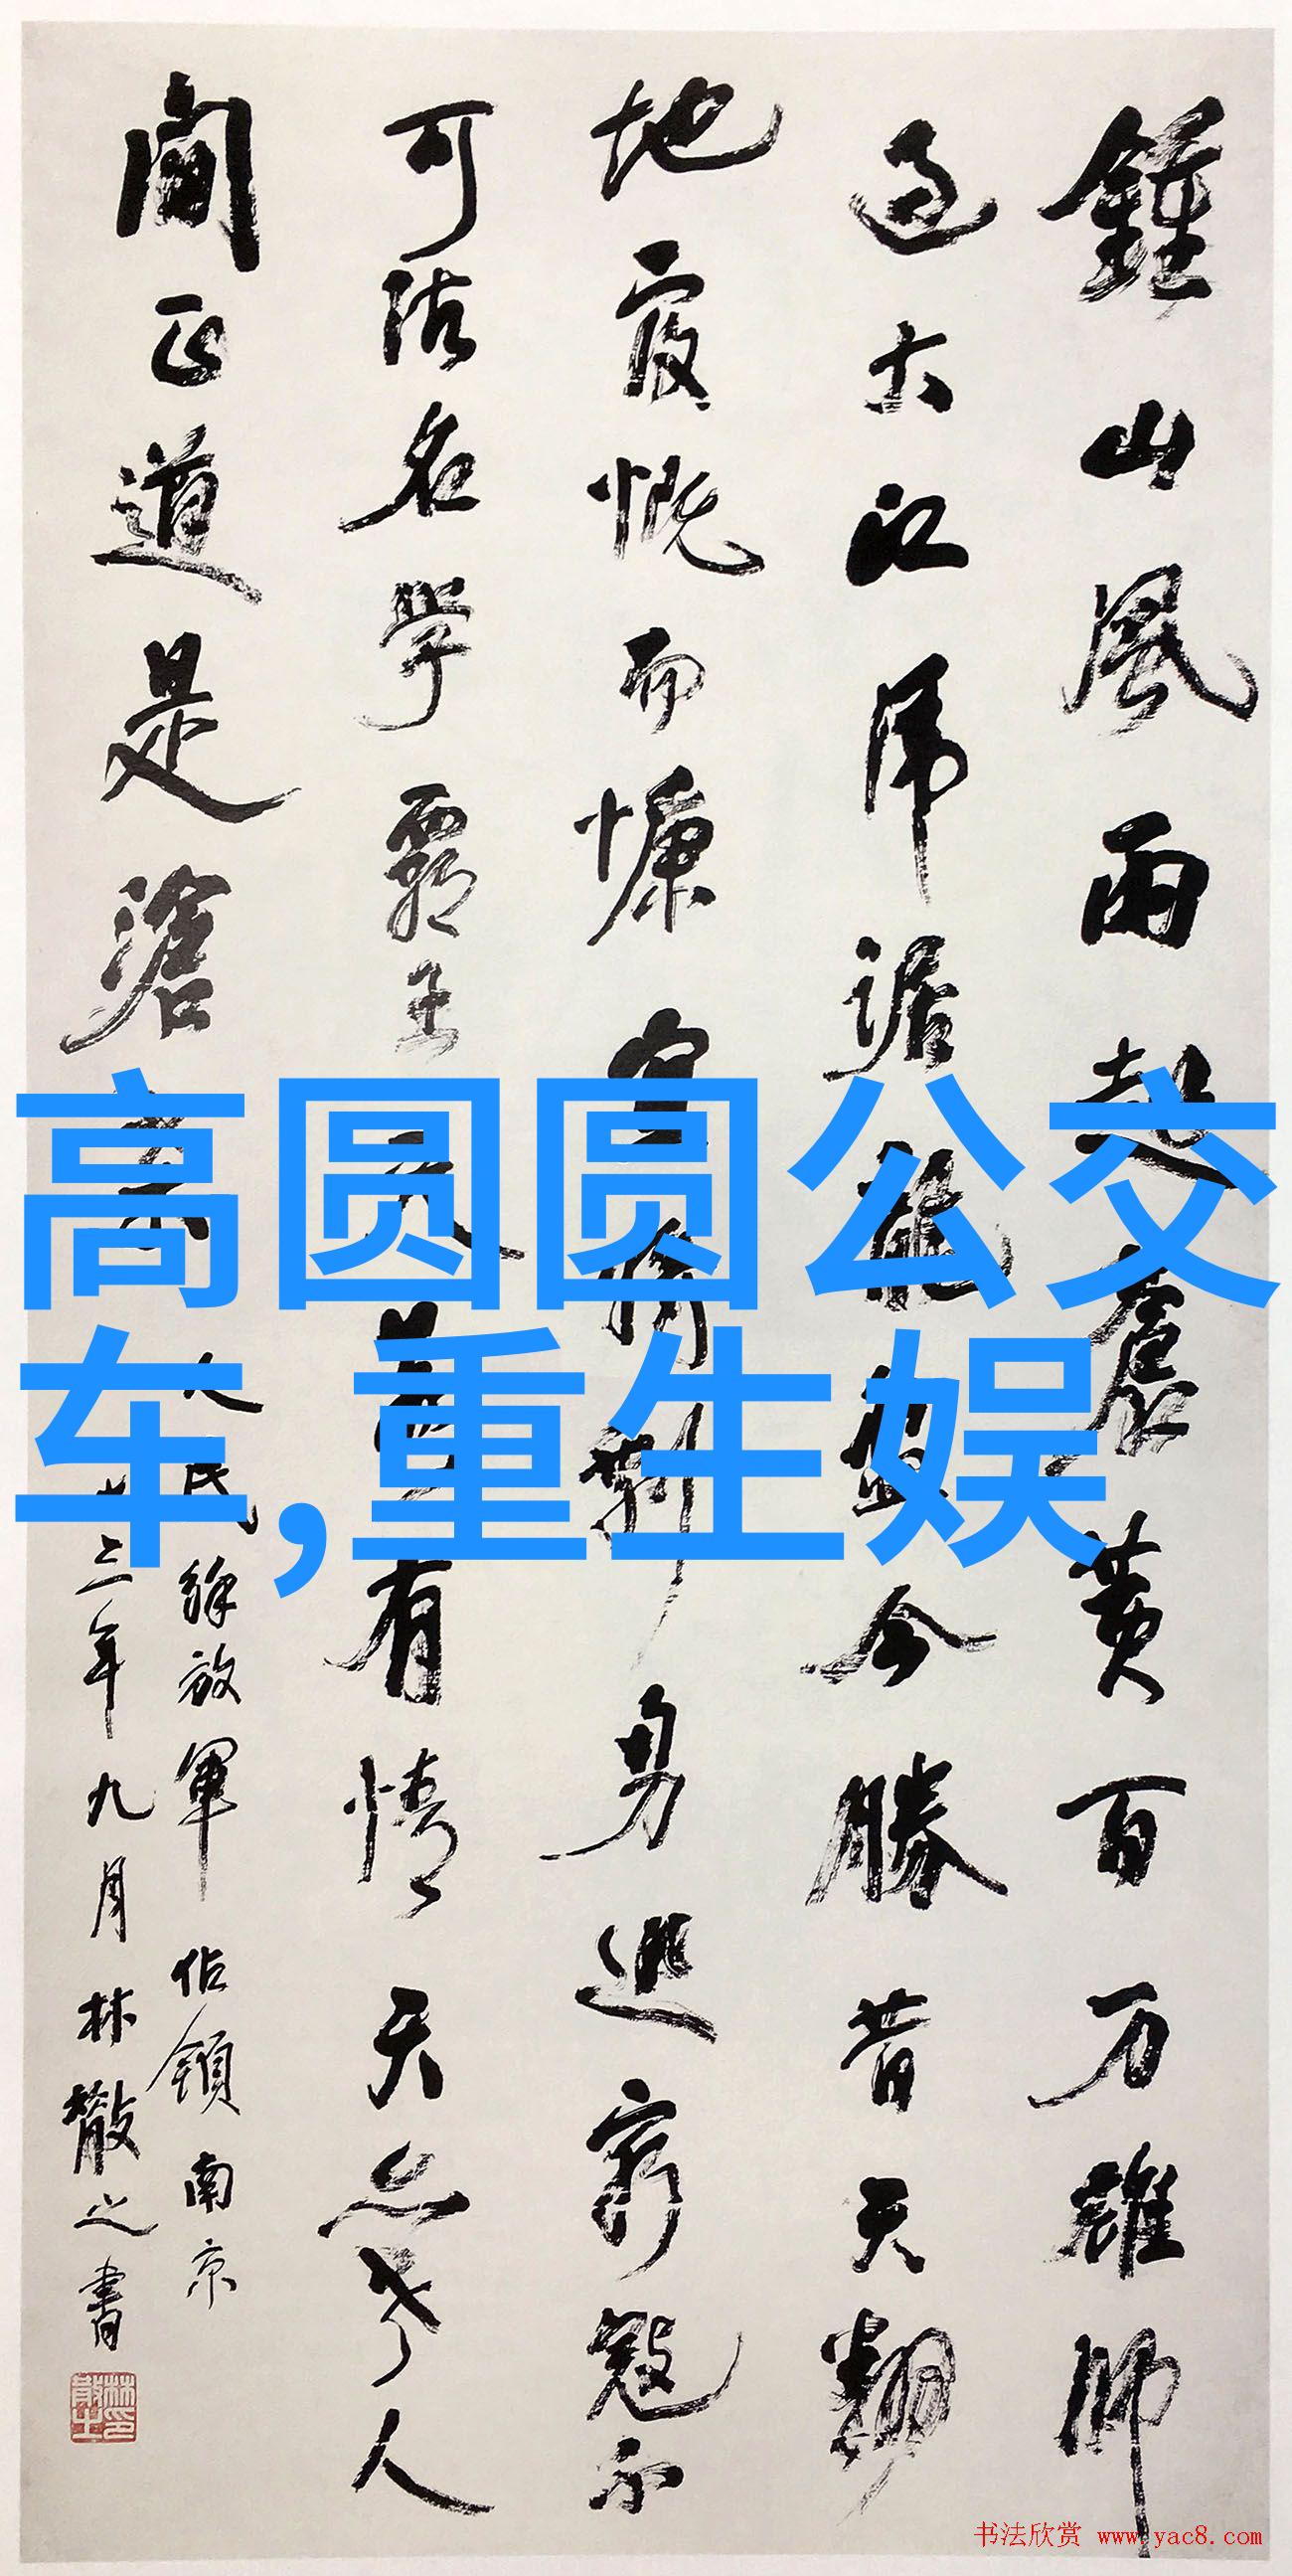 鍾山風雨起蒼黄百万雄師
过大江虎踞龍盤今勝昔天翻
地覆慨而慷宜將剩勇追窮寇不
可沽名學霸王天若有情天亦老人
間正道是滄桑
人民解放軍佔領南京
三年九月林散之書
林散之印
高圆圆公交
车,重生娱
书法欣赏 www.yac8.com